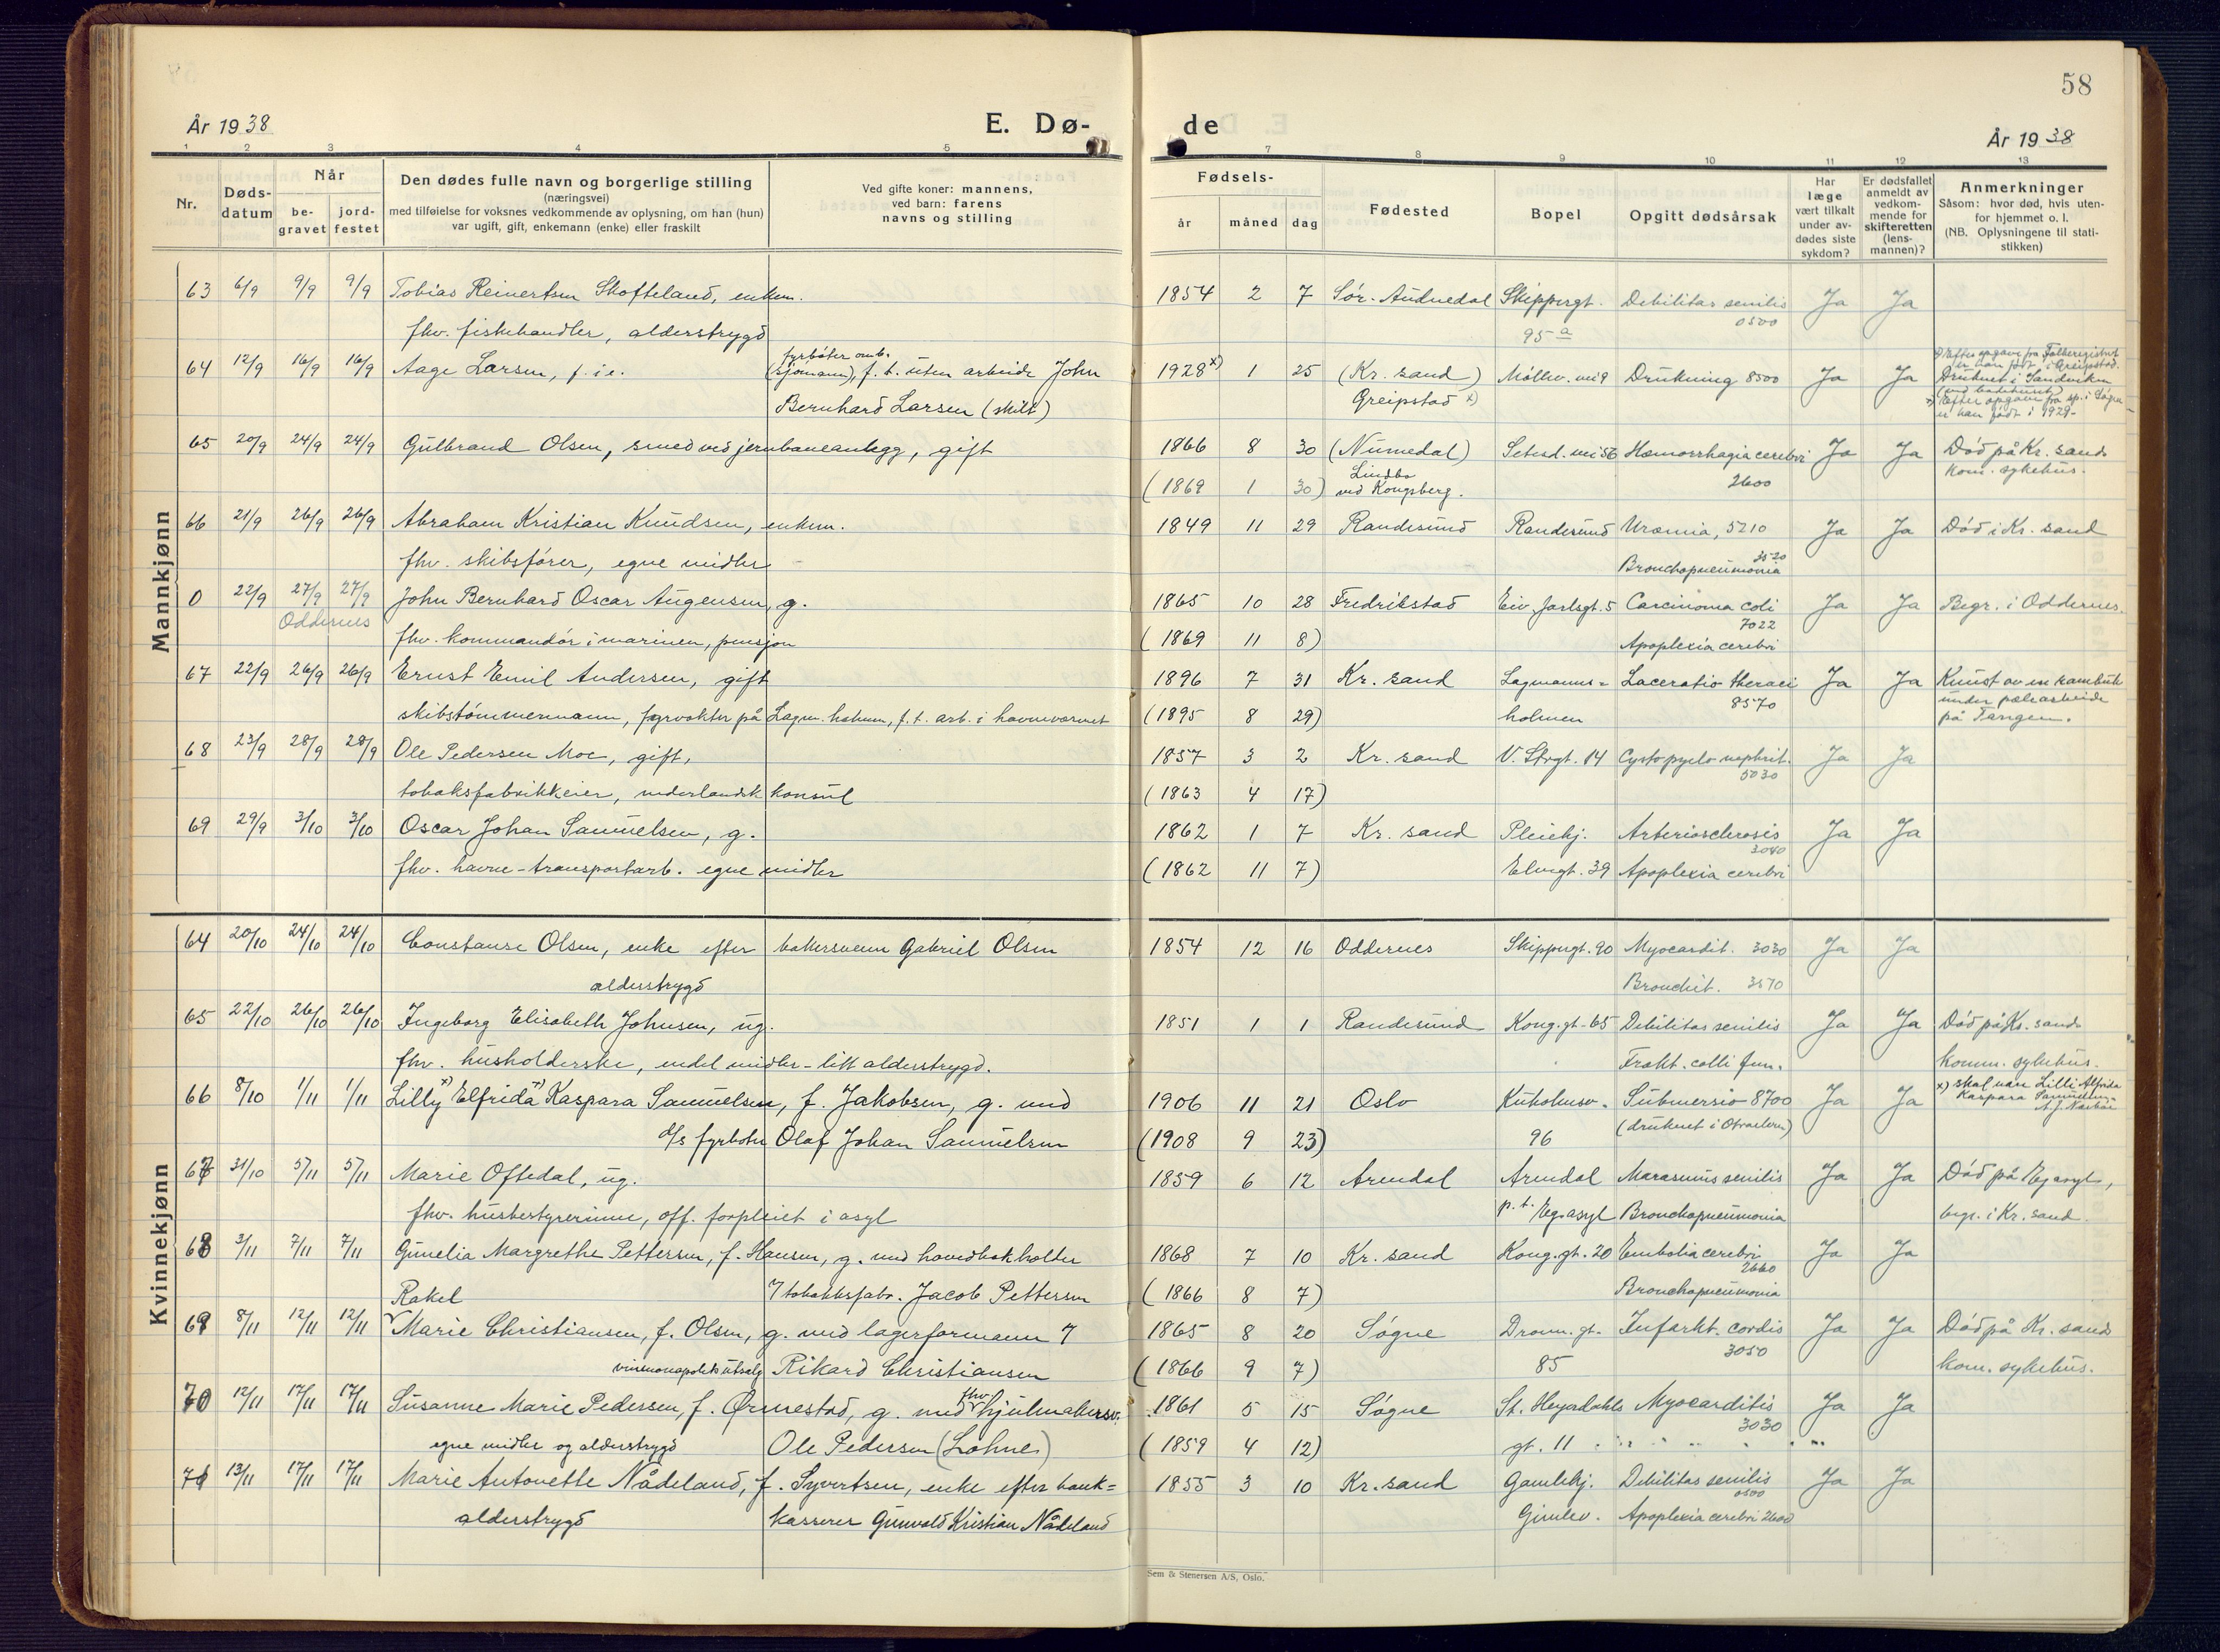 58
År 1938
E. Dø-
de
År 1938
1 2 3 4 5
7 8 9 10 11 12 13
Nr.
Døds-
datum
Når
be-
gravet
jord-
festet
Den dødes fulle navn og borgerlige stilling
(næringsvei)
med tilføielse for voksnes vedkommende av oplysning, om han (hun)
var ugift, gift, enkemann (enke) eller fraskilt
Ved gifte koner: mannens,
ved barn: farens
navns og stilling
Fødsels-
år måned dag
Fødested
Bopel
Opgitt dødsårsak
Har
læge
vært tilkalt
under av-
dødes siste
sykdom?
Er dødsfallet
anmeldt av
vedkom-
mende for
skifteretten
(lens-
mannen)?
Anmerkninger
Såsom: hvor død, hvis uten-
for hjemmet o. l.
(NB. Oplysningene til stati-
stikken)
Mannkjønn
63 6/9 9/9 9/9 Tobias Reinertsen Skofteland, enkem. 1854 2 7 Sör-Audnedal Skippergt. Debilitas senilis Ja Ja
0500
fhv. fiskehandler, alderstrygd 95 a
fyrböter omb.
64 12/9 16/9 16/9 Aage Larsen, f. i e. (sjömann), f. t. uten arbeide John 1928 x) 1 25 (Kr. sand) Möllev. vei 9 Drukning 8500 Ja Ja
Bernhard Larsen (skilt) Greipstad x)
x) Efter opgave fra Folkeregistret
er han født i Greipstad.
Druknet i Sandviken
x) Efter opgave fra sp. i Søgne
er han født i 1929-
65 20/9 24/9 24/9 Gulbrand Olsen, smed ved jernbaneanlegg, gift 1866 8 30 (Numedal) Setesd. vei 56 Hæmorrhagia cerebri Ja Ja Död på Kr. sands
kom. sykehus.
(1869 1 30) Lindbo
ved Kongsberg. 2600
66 21/9 26/9 26/9 Abraham Kristian Knudsen, enkem. 1849 11 29 Randesund Randesund Uræmia, 5210 Ja Ja Död i Kr. sand
fhv. skibsförer, egne midler 3520
Bronchopneumonia
0 22/9 27/9 27/9 John Bernhard Oscar Augensen, g. 1865 10 28 Fredrikstad Eiv. Jarlsgt. 5 Carcinoma coli Ja Ja Begr. i Oddernes.
Oddernes 7022
fhv. kommandör i marinen, pensjon (1869 11 8) Apoplexia cerebri
67 22/9 26/9 26/9 Ernst Emil Andersen, gift 1896 7 31 Kr. sand Lagmanns- Laceratio thoraci Ja Ja Knust av en rambuk
under pælearbeide
på Tangen.
8570
skibstömmermann, fyrvokter på Lagm. holmen, f. t. arb. i havnevæsnet (1895 8 29) holmen
68 23/9 28/9 28/9 Ole Pedersen Moe, gift, 1857 3 2 Kr. sand V. Strgt. 14 Cystopyelo nephrit. Ja Ja
5030
tobaksfabrikkeier, nederlandsk konsul (1863 4 17)
69 29/9 3/10 3/10 Oscar Johan Samuelsen, g. 1862 1 7 Kr. sand Pleiehj. Arteriosclerosis Ja Ja
3040
fhv. havne-transportarb. egne midler (1862 11 7) Elvegt. 39 Apoplexia cerebri
Kvinnekjønn
64 20/10 24/10 24/10 Constanse Olsen, enke efter bakersvenn Gabriel Olsen 1854 12 16 Oddernes Skippergt. 90 Myocardit. 3030 Ja Ja
alderstrygd Bronchit. 3570
65 22/10 26/10 26/10 Ingeborg Elisabeth Johnsen, ug. 1851 1 1 Randesund Kong. gt. 65 Debilitas senilis Ja Ja Död på Kr. sands
fhv. husholderske, endel midler - litt alderstrygd. Frakt. colli fem. komm. sykehus.
66 8/10 1/11 1/11 Lilly x) Elfrida x) Kaspara Samuelsen, f. Jakobsen, g. med 1906 11 21 Oslo Kuholmsv. Submersio 8700 Ja Ja x) skal være Lilli Alfrida
Kaspara Samuelsen
d/s fyrböter Olaf Johan Samuelsen (1908 9 23) 96 (druknet i Otraelven)
67 31/10 5/11 5/11 Marie Oftedal, ug. 1859 6 12 Arendal Arendal Marasmus senilis Ja Ja Död på Eg asyl,
fhv. husbestyrerinne, off. forpleiet i asyl p. t. Eg. asyl Bronchopneumonia begr. i Kr. sand.
68 3/11 7/11 7/11 Gunelia Margrethe Pettersen, f. Hansen, g. med hovedbokholder 1868 7 10 Kr. sand Kong. gt. 20 Embolia cerebri Ja Ja
2660
Rakel i tobakksfabr. Jacob Pettersen (1866 8 7) Bronchopneumonia
69 8/11 12/11 12/11 Marie Christiansen, f. Olsen, g. med lagerformann i 1865 8 20 Sögne Dronn. gt. Infarkt. cordis Ja Ja Död på Kr. sands
3050
vinmonopolets utsalg Rikard Christiansen (1866 9 7) 85 kom. sykehus.
70 12/11 17/11 17/11 Susanne Marie Pedersen, f. Ørnestad, g. med fhv. hjulmakersv. 1861 5 15 Sögne St. Heyerdahls Myocarditis Ja Ja
3030
egne midler og alderstrygd Ole Pedersen (Lohne) (1859 4 12) gt. 11
71 13/11 17/11 17/11 Marie Antonette Nådeland, f. Syvertsen, enke efter bank= 1855 3 10 Kr. sand Gamlehj. Debilitas senilis Ja Ja
0500
alderstrygd kasserer Gunvald Kristian Nådeland Gimlev. Apoplexia cerebri 2600
Sem & Stenersen A/S, Oslo.